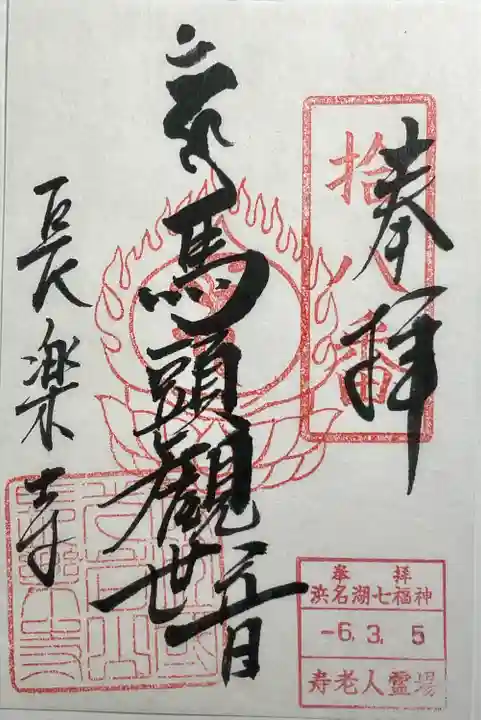 奉拝
拾八番
馬頭觀世音
長楽寺
奉 拝
浜名湖七福神
-6.3.5
寿老人霊場